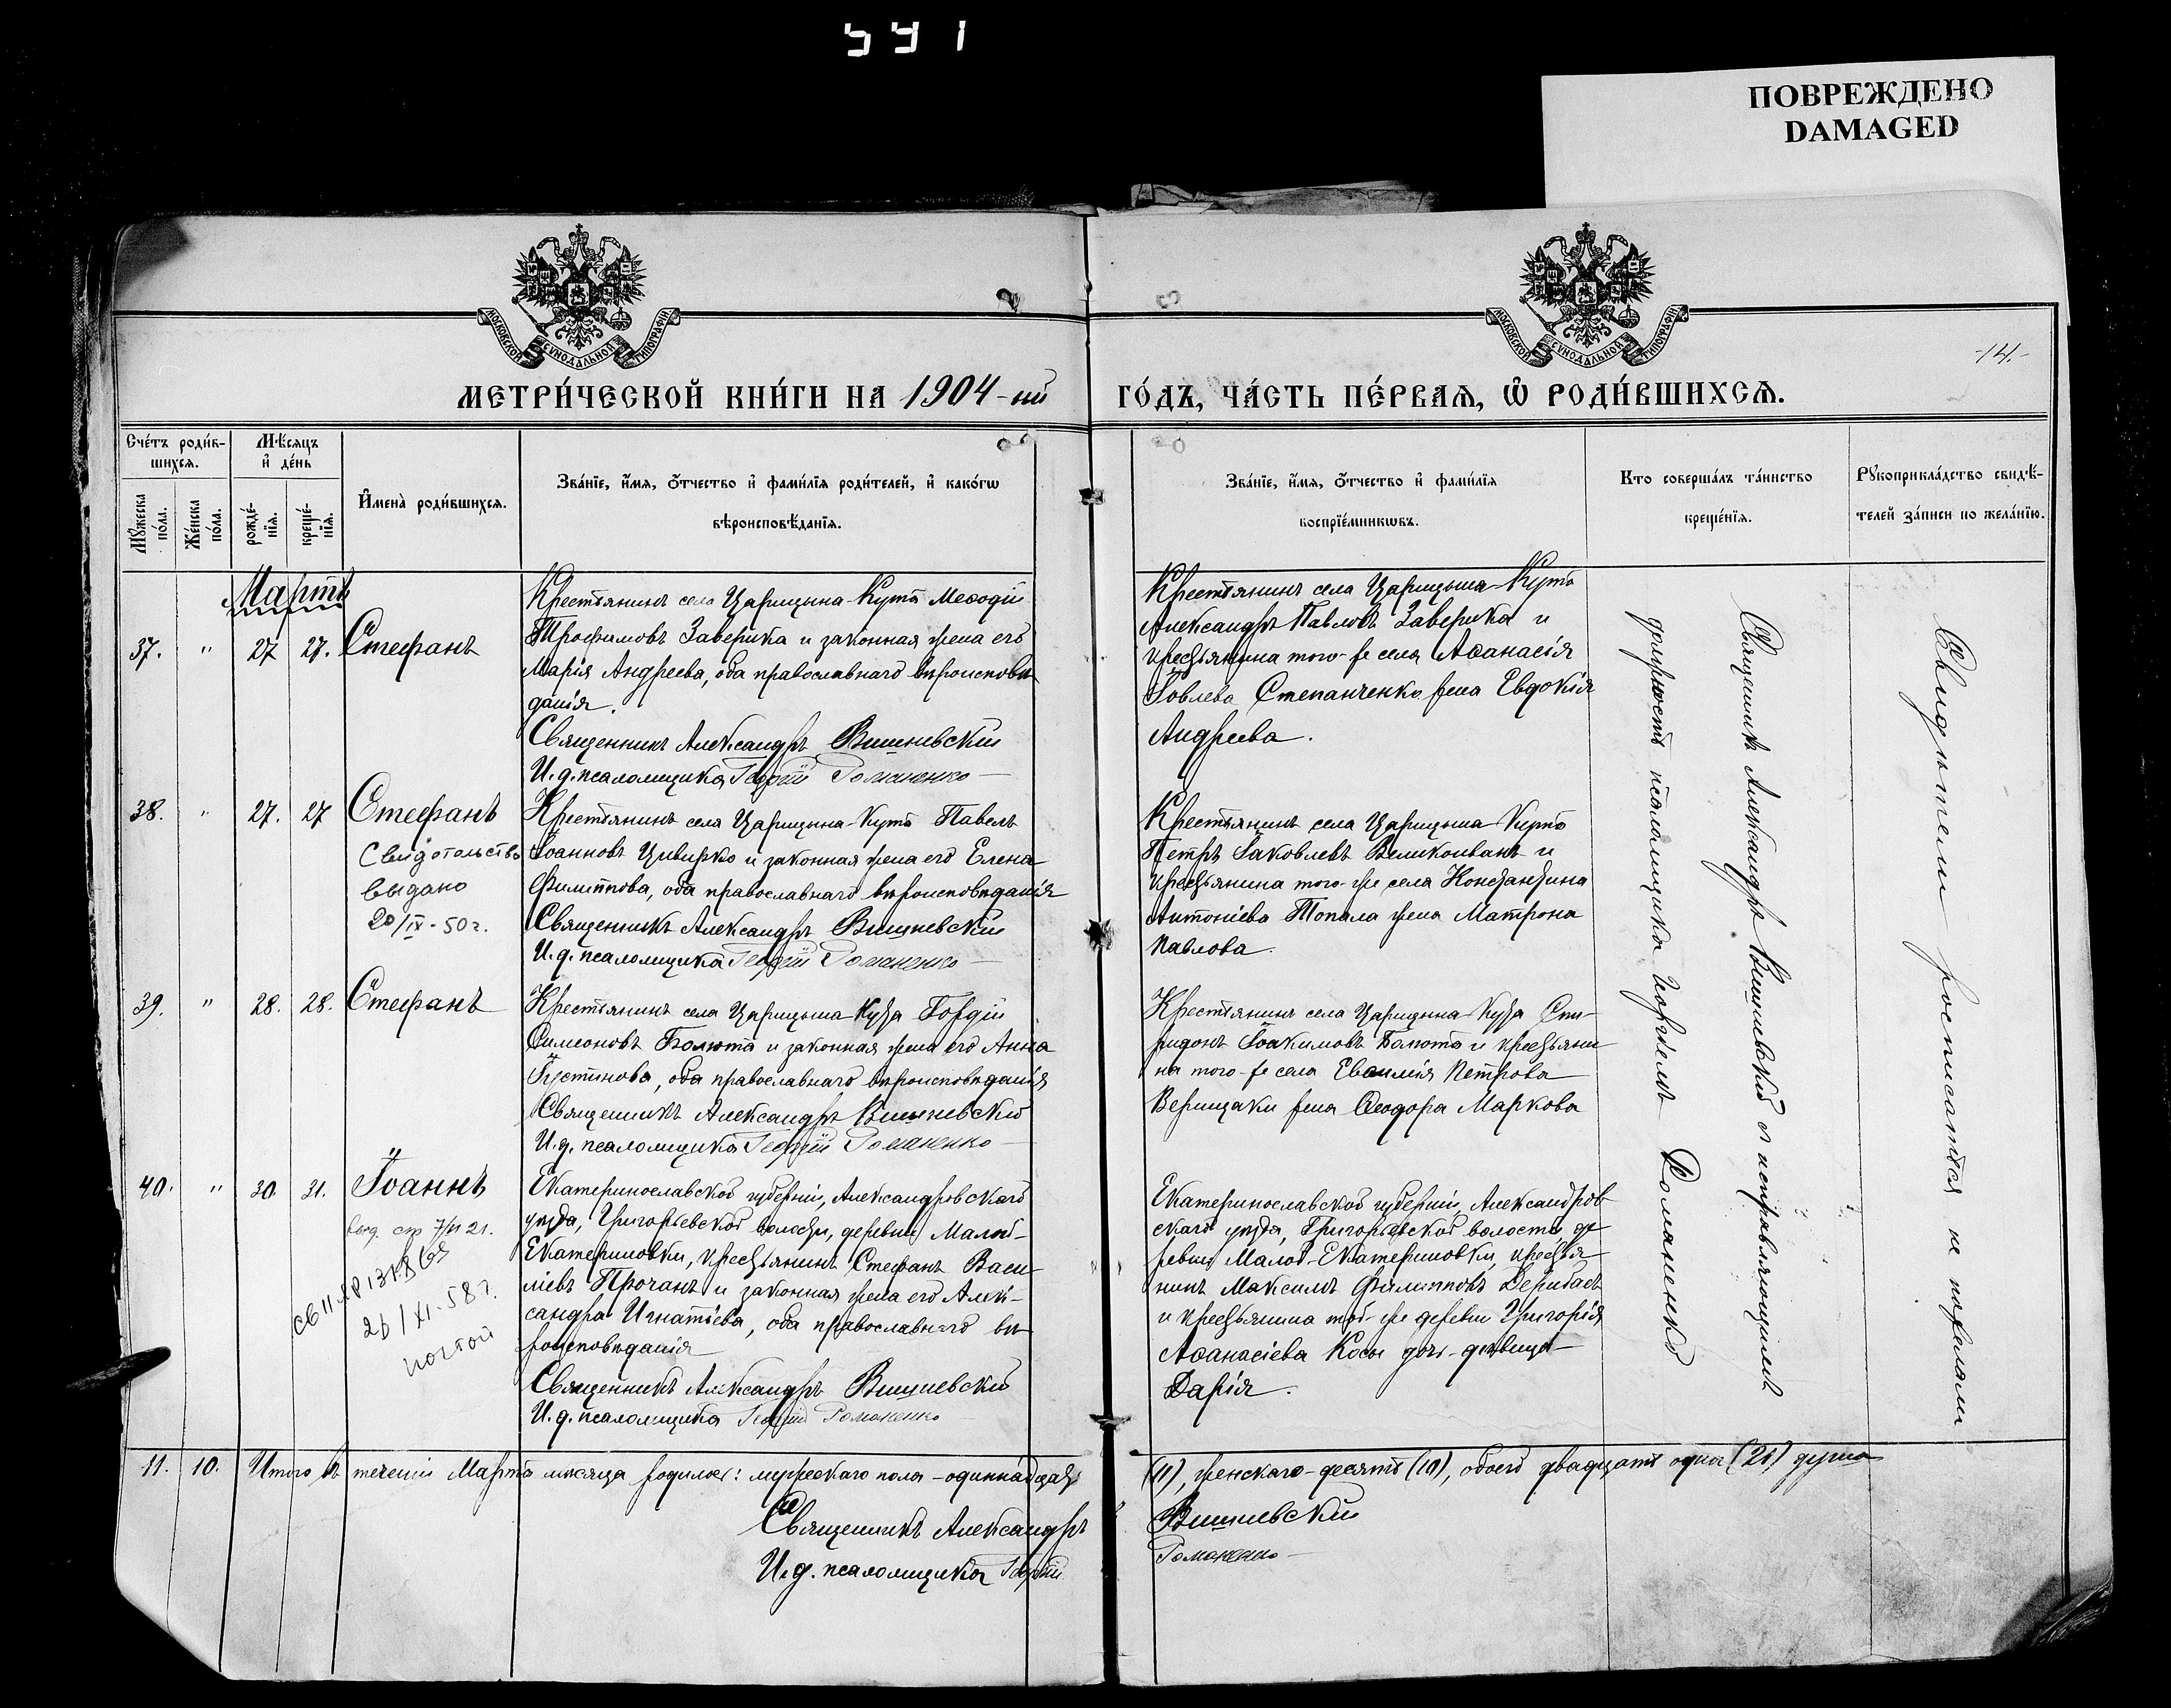 541
ПОВРЕЖДЕНО
DAMAGED
МОСКОВСКОЙ СѴНОДАЛЬНОЙ ТИПОГРАФІИ
МОСКОВСКОЙ СѴНОДАЛЬНОЙ ТИПОГРАФІИ
-14.-
МЕТРИ́ЧЕСКОЙ КНИ́ГИ НА 1904-ый
ГО́ДЪ, ЧА́СТЬ ПЕ́РВАЯ, Ѡ҆ РОДИ́ВШИХСЯ.
Сче́тъ роди́в-
шихся.
Мꙋ́жеска по́ла.
Же́нска по́ла.
Мѣ́сяцъ
и҆ де́нь
рожде́-
нїя.
креще́-
нїя.
И҆мена̀ роди́вшихся.
Зва́нїе, и҆́мя, ѻ҆́тчество и҆ фами́лїя роди́телей, и҆ како́гѡ
вѣроисповѣ́данїя.
Зва́нїе, и҆́мя, ѻ҆́тчество и҆ фами́лїя
воспрїе́мникѡвъ.
Кто соверша́лъ та́инство
креще́нїя.
Рꙋкоприкла́дство свидѣ́-
телей за́писи по жела́нїю.
Мартъ
37. " 27 28. Стефанъ
Крестьянинъ села Царицына-Кута Меѳодій
Трофимовъ Заверика и законная жена его
Марія Андреева, оба православнаго вѣроисповѣ-
данія.
Священникъ Александръ Вишневскій
И.д. псаломщика Георгій Романенко
Крестьянинъ села Царицына-Кута
Александръ Павловъ Заверика и
крестьянина того-же села Аѳанасія
Іовлева Степанченко жена Евдокія
Андреева.
38. " 27. 27 Стефанъ
Свидетельство
выдано
20/IX-50г.
Крестьянинъ села Царицына-Кута Павелъ
Іоанновъ Цивирко и законная жена его Елена
Филиппова, оба православнаго вѣроисповѣданія
Священникъ Александръ Вишневскій
И.д. псаломщика Георгій Романенко
Крестьянинъ села Царицына Кута
Петръ Іаковлевъ Великоиванъ и
крестьянина того-же села Константина
Антоніева Топала жена Матрона
Павлова.
39. " 28. 28. Стефанъ
Крестьянинъ села Царицына Кута Гордій
Симеоновъ Болюта и законная жена его Анна
Іустинова, оба православнаго вѣроисповѣданія
Священникъ Александръ Вишневскій
И.д. псаломщика Георгій Романенко
Крестьянинъ села Царицына Кута Спи-
ридонъ Іоакимовъ Болюта и крестьяни-
на того-же села Евѳимія Петрова
Верещаки жена Ѳеодора Маркова
40. " 30. 31. Іоаннъ
26/XI-58г.
Екатеринославской губерніи, Александровскаго
уѣзда, Григорьевской волости, деревни Малой-
Екатериновки, крестьянинъ Стефанъ Васи-
ліевъ Прочанъ и законная жена его Алек-
сандра Игнатіева, оба православнаго вѣ-
роисповѣданія
Священникъ Александръ Вишневскій
И.д. псаломщика Георгій Романенко
Екатеринославской губерніи, Александров-
скаго уѣзда, Григорьевской волости, де-
ревни Малой-Екатериновки, крестья-
нинъ Максимъ Филипповъ Дерибасъ
и крестьянина той-же деревни Григорія
Аѳанасіева Косы дочь-дѣвица
Дарія.
Священникъ Александръ Вишневскій съ исправляющимъ
должность псаломщика Георгіемъ Романенко
Свидѣтели росписаться не пожелали
11. 10. Итого въ теченіи Марта мѣсяца родилось: мужескаго пола - одиннадцать
(11), женскаго-десять (10), обоего двадцать одна (21) душа
Священникъ Александръ
Вишневскій
И.д. псаломщика Георгій
Романенко